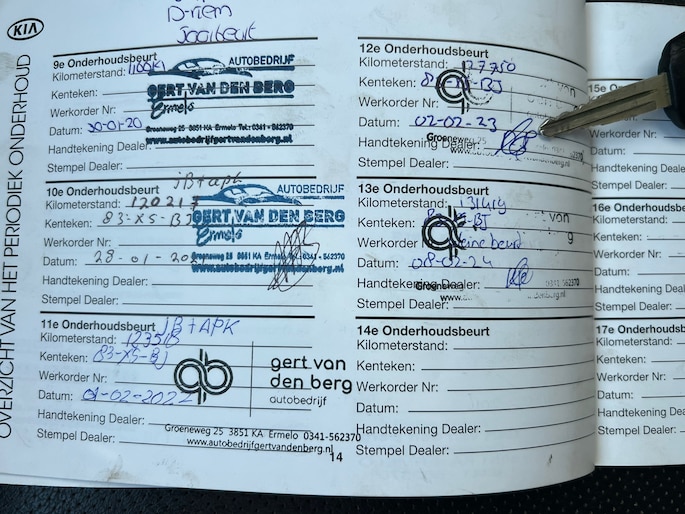 KIA
OVERZICHT VAN HET PERIODIEK ONDERHOUD
D-riem
9e Onderhoudsbeurt
Kilometerstand:
Kenteken:
Werkorder Nr:
Datum: 30-01-20
Handtekening Dealer:
Stempel Dealer:
AUTOBEDRIJF
GERT VAN DEN BERG
Ermelo
Groeneweg 25 3851 KA Ermelo Tel.: 0341-562370
www.autobedrijfgertvandenberg.nl
JB+APK
10e Onderhoudsbeurt
Kilometerstand: 120217
Kenteken: 83-XS-BJ
Werkorder Nr:
Datum: 28-01-202
Handtekening Dealer:
Stempel Dealer:
AUTOBEDRIJF
GERT VAN DEN BERG
Ermelo
Groeneweg 25 3851 KA Ermelo Tel.: 0341-562370
www.autobedrijfgertvandenberg.nl
11e Onderhoudsbeurt JB+APK
Kilometerstand: 123515
Kenteken: 83-XS-BJ
Werkorder Nr:
Datum: 01-02-2022
Handtekening Dealer:
Stempel Dealer:
gert van
den berg
autobedrijf
Groeneweg 25 3851 KA Ermelo 0341-562370
www.autobedrijfgertvandenberg.nl
14
12e Onderhoudsbeurt
Kilometerstand: 127750
Kenteken:
Werkorder Nr:
Datum: 02-02-23
Groeneweg 25
Handtekening Dealer:
Stempel Dealer:
13e Onderhoudsbeurt
Kilometerstand: 131419
Kenteken:
Werkorder
Datum: 08-02-24
Handtekening Dealer:
0341-562370
Stempel Dealer:
14e Onderhoudsbeurt
Kilometerstand:
Kenteken:
Werkorder Nr:
Datum:
Handtekening Dealer:
Stempel Dealer:
15e
Datum:
Handtekening
Stempel Dealer:
16e Onderh
Kilometerst
Kenteken:
Werkorder
Datum:
Handtekening
Stempel Dealer:
17e Onderh
Kilometerst
Kenteken:
Werkorder
Datum:
Handteken
Stempel De